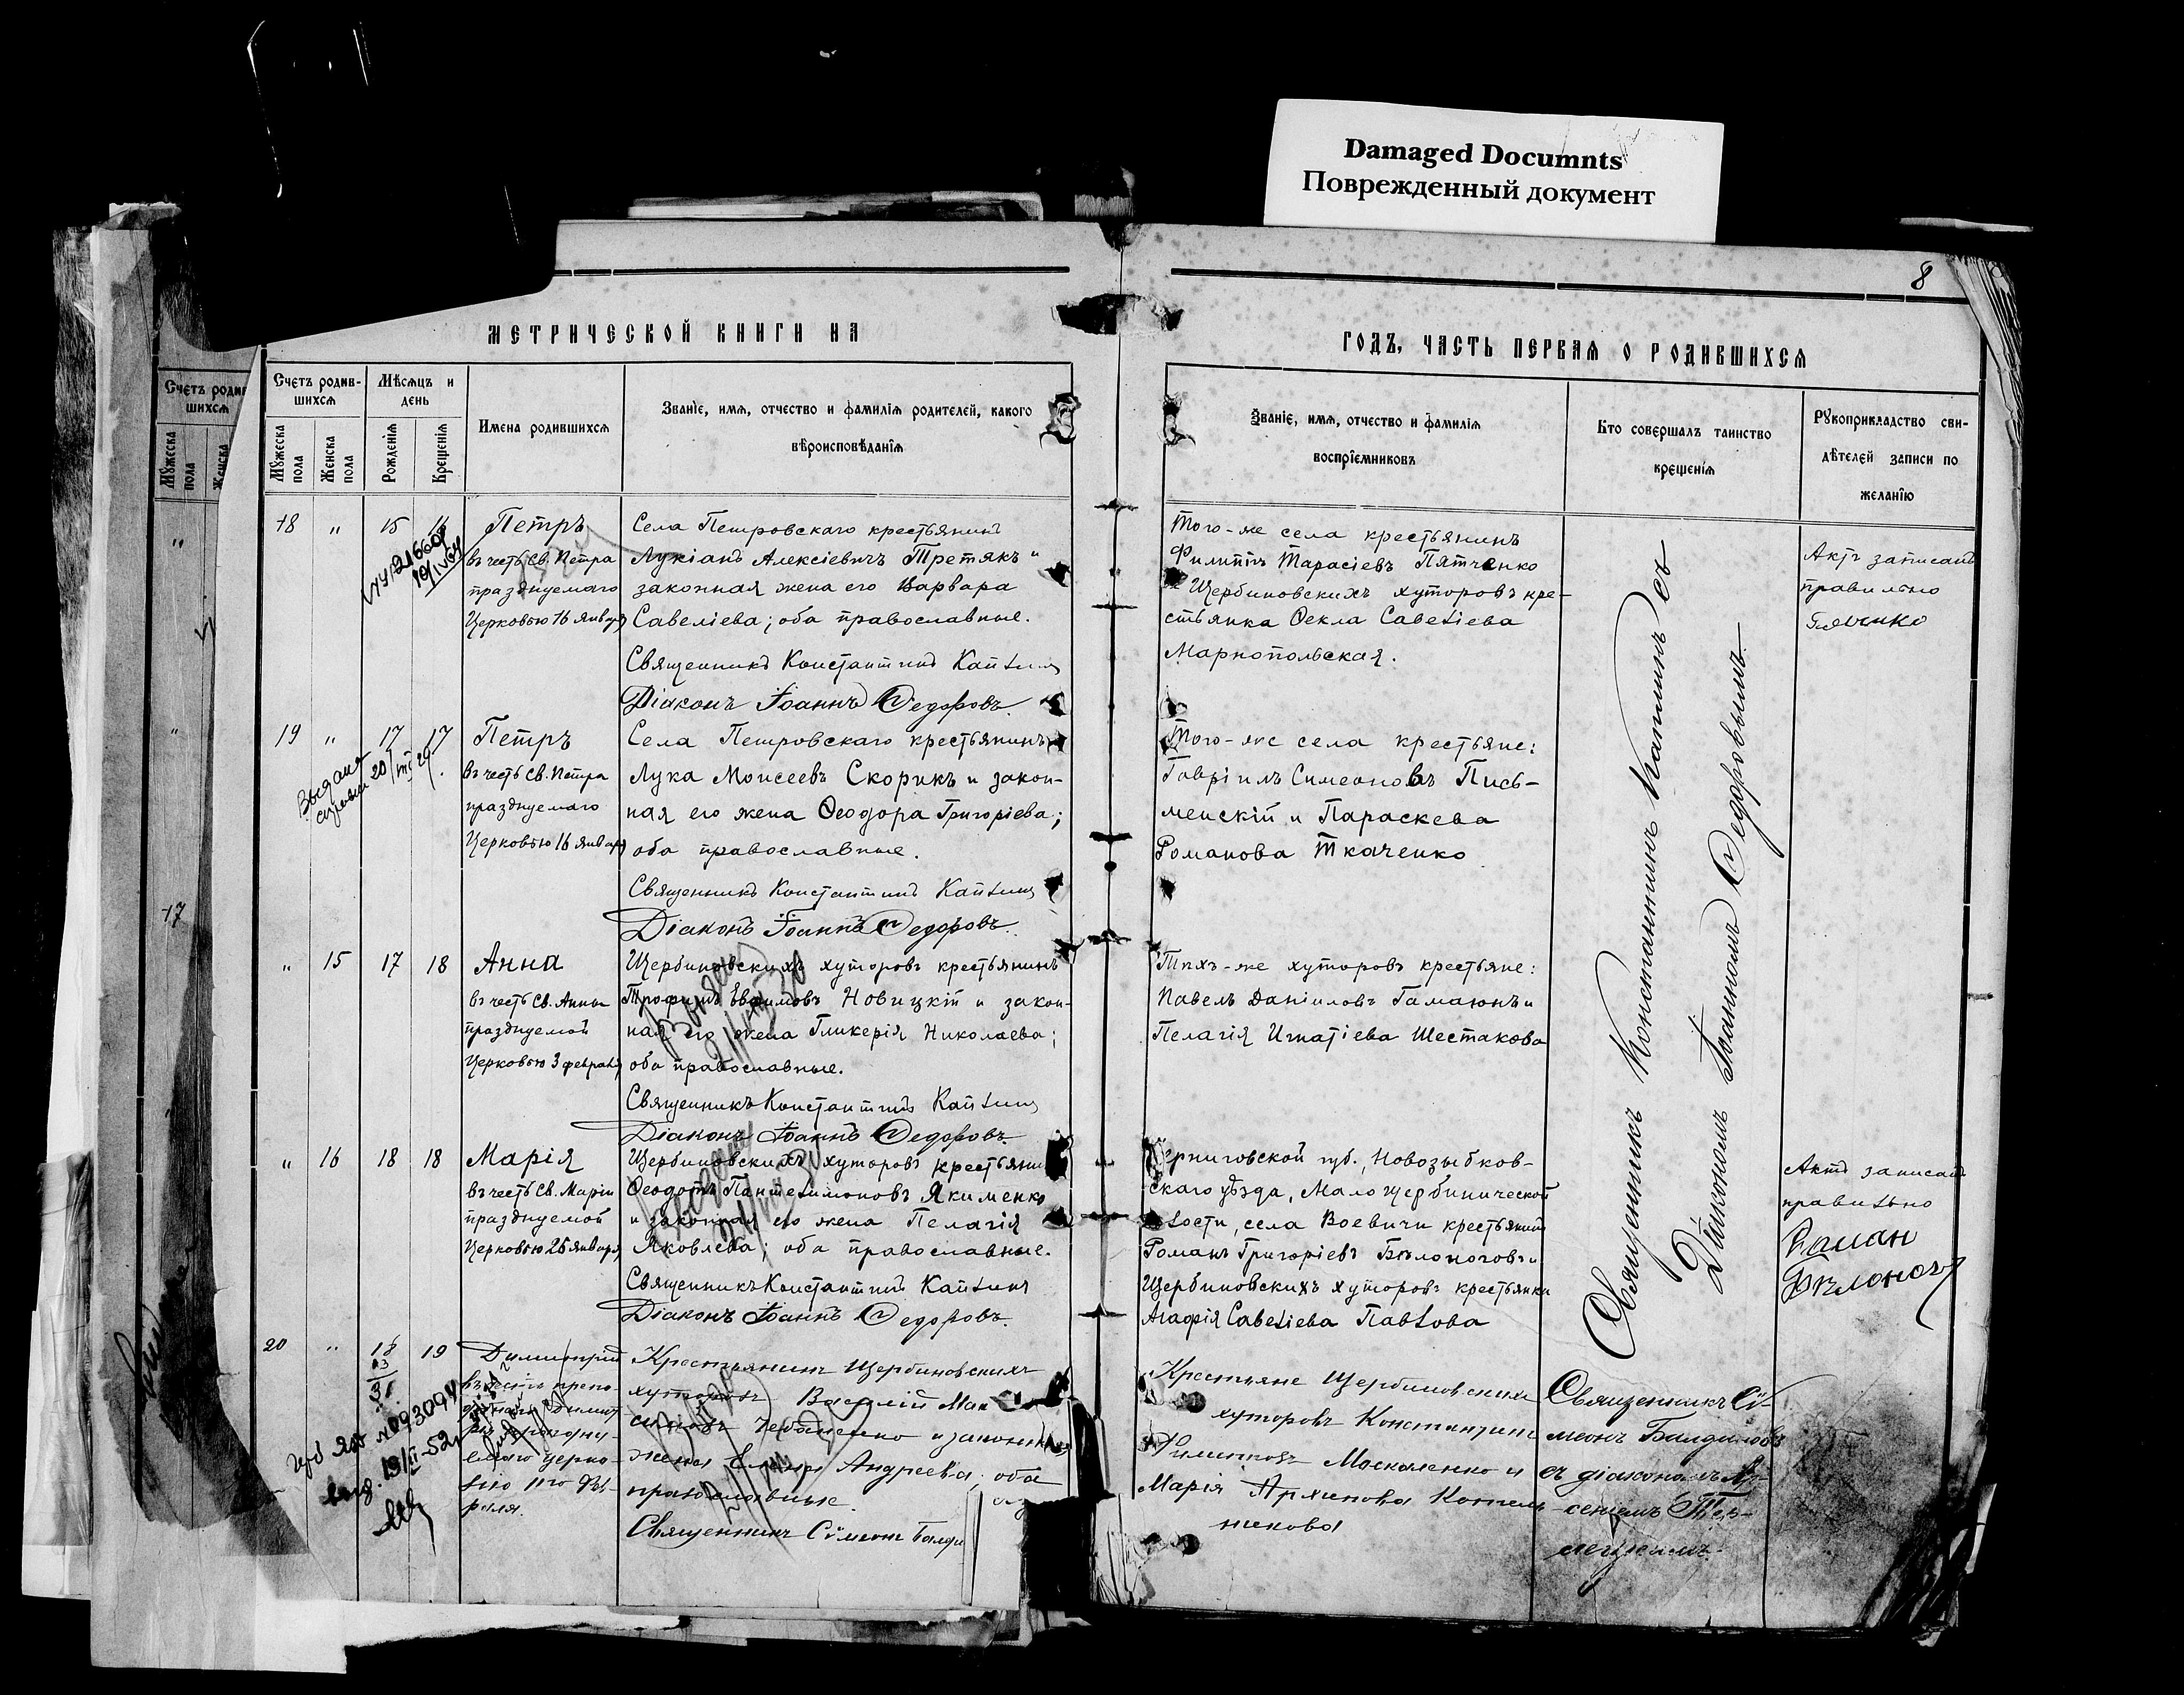 Damaged Documnts
Поврежденный документ
8
МЕТРИЧЕСКОЙ КНИГИ НА
ГОДЪ, ЧАСТЬ ПЕРВАЯ О РОДИВШИХСЯ
Счетъ родив-
шихся
Мѣсяцъ и
день
Мужеска
пола
Женска
пола
Рожденія
Крещенія
Имена родившихся
Званіе, имя, отчество и фамилія родителей, какого
вѣроисповѣданія
Званіе, имя, отчество и фамилія
воспріемниковъ
Кто совершалъ таинство
крещенія
Рукоприкладство сви-
дѣтелей записи по
желанію
18 " 15 16
Петръ
въ честь Св. Петра
празднуемаго
Церковью 16 января
Села Петровскаго крестьянинъ
Лукіанъ Алексіевичъ Третякъ и
законная жена его Варвара
Савеліева; оба православные.
Священникъ Константинъ Каплинъ
Діаконъ Іоаннъ Федоровъ.
Того-же села крестьянинъ
Филиппъ Тарасіевъ Пятченко
и Щербиновскихъ хуторовъ кре-
стьянка Ѳекла Савеліева
Марнопольская.
Актъ записанъ
правильно
19 " 17 17
Выдана
Петръ
въ честь Св. Петра
празднуемаго
Церковью 16 января
Села Петровскаго крестьянинъ
Лука Моисеевъ Скорикъ и закон-
ная его жена Ѳеодора Григоріева;
оба православные.
Священникъ Константинъ Каплинъ
Діаконъ Іоаннъ Федоровъ.
Того-же села крестьяне:
Гавріилъ Симеоновъ Пись-
менскій и Параскева
Романова Ткаченко
" 15 17 18
Анна
въ честь Св. Анны
празднуемой
Церковью 3 февраля
Щербиновскихъ хуторовъ крестьянинъ
Трофимъ Евфимовъ Новицкій и закон-
ная его жена Гликерія Николаева;
оба православные.
Священникъ Константинъ Каплинъ
Діаконъ Іоаннъ Федоровъ.
Тѣхъ-же хуторовъ крестьяне:
Павелъ Даніиловъ Гамаюнъ и
Пелагія Игнатіева Шестакова
" 16 18 18
Марія
въ честь Св. Маріи
празднуемой
Церковью 26 января
Щербиновскихъ хуторовъ крестьянинъ
Ѳеодотъ Пантелимоновъ Якименко
и законная его жена Пелагія
Яковлева; оба православные.
Священникъ Константинъ Каплинъ
Діаконъ Іоаннъ Федоровъ.
Черниговской губ., Новозыбков-
скаго уѣзда, Мало щербинической
волости, села Воевичи крестьянинъ
Романъ Григоріевъ Бѣлоноговъ и
Щербиновскихъ хуторовъ крестьянка
Агафія Савеліева Павлова
Актъ записанъ
правильно
Роман
Священникъ Константинъ Каплинъ съ
Діакономъ Іоанномъ Федоровымъ.
20 " 18 19
Димитрій
Крестьянинъ Щербиновскихъ
хуторовъ Василій
и законная
жена Елена Андреева, оба
православные.
Священникъ Сѵмеонъ
Крестьяне Щербиновскихъ
хуторовъ Константинъ
Филиповъ Москаленко и
Марія Архипова Котель-
никова
Священникъ Сѵ-
меонъ
съ діакономъ Ар-
сеніемъ
17